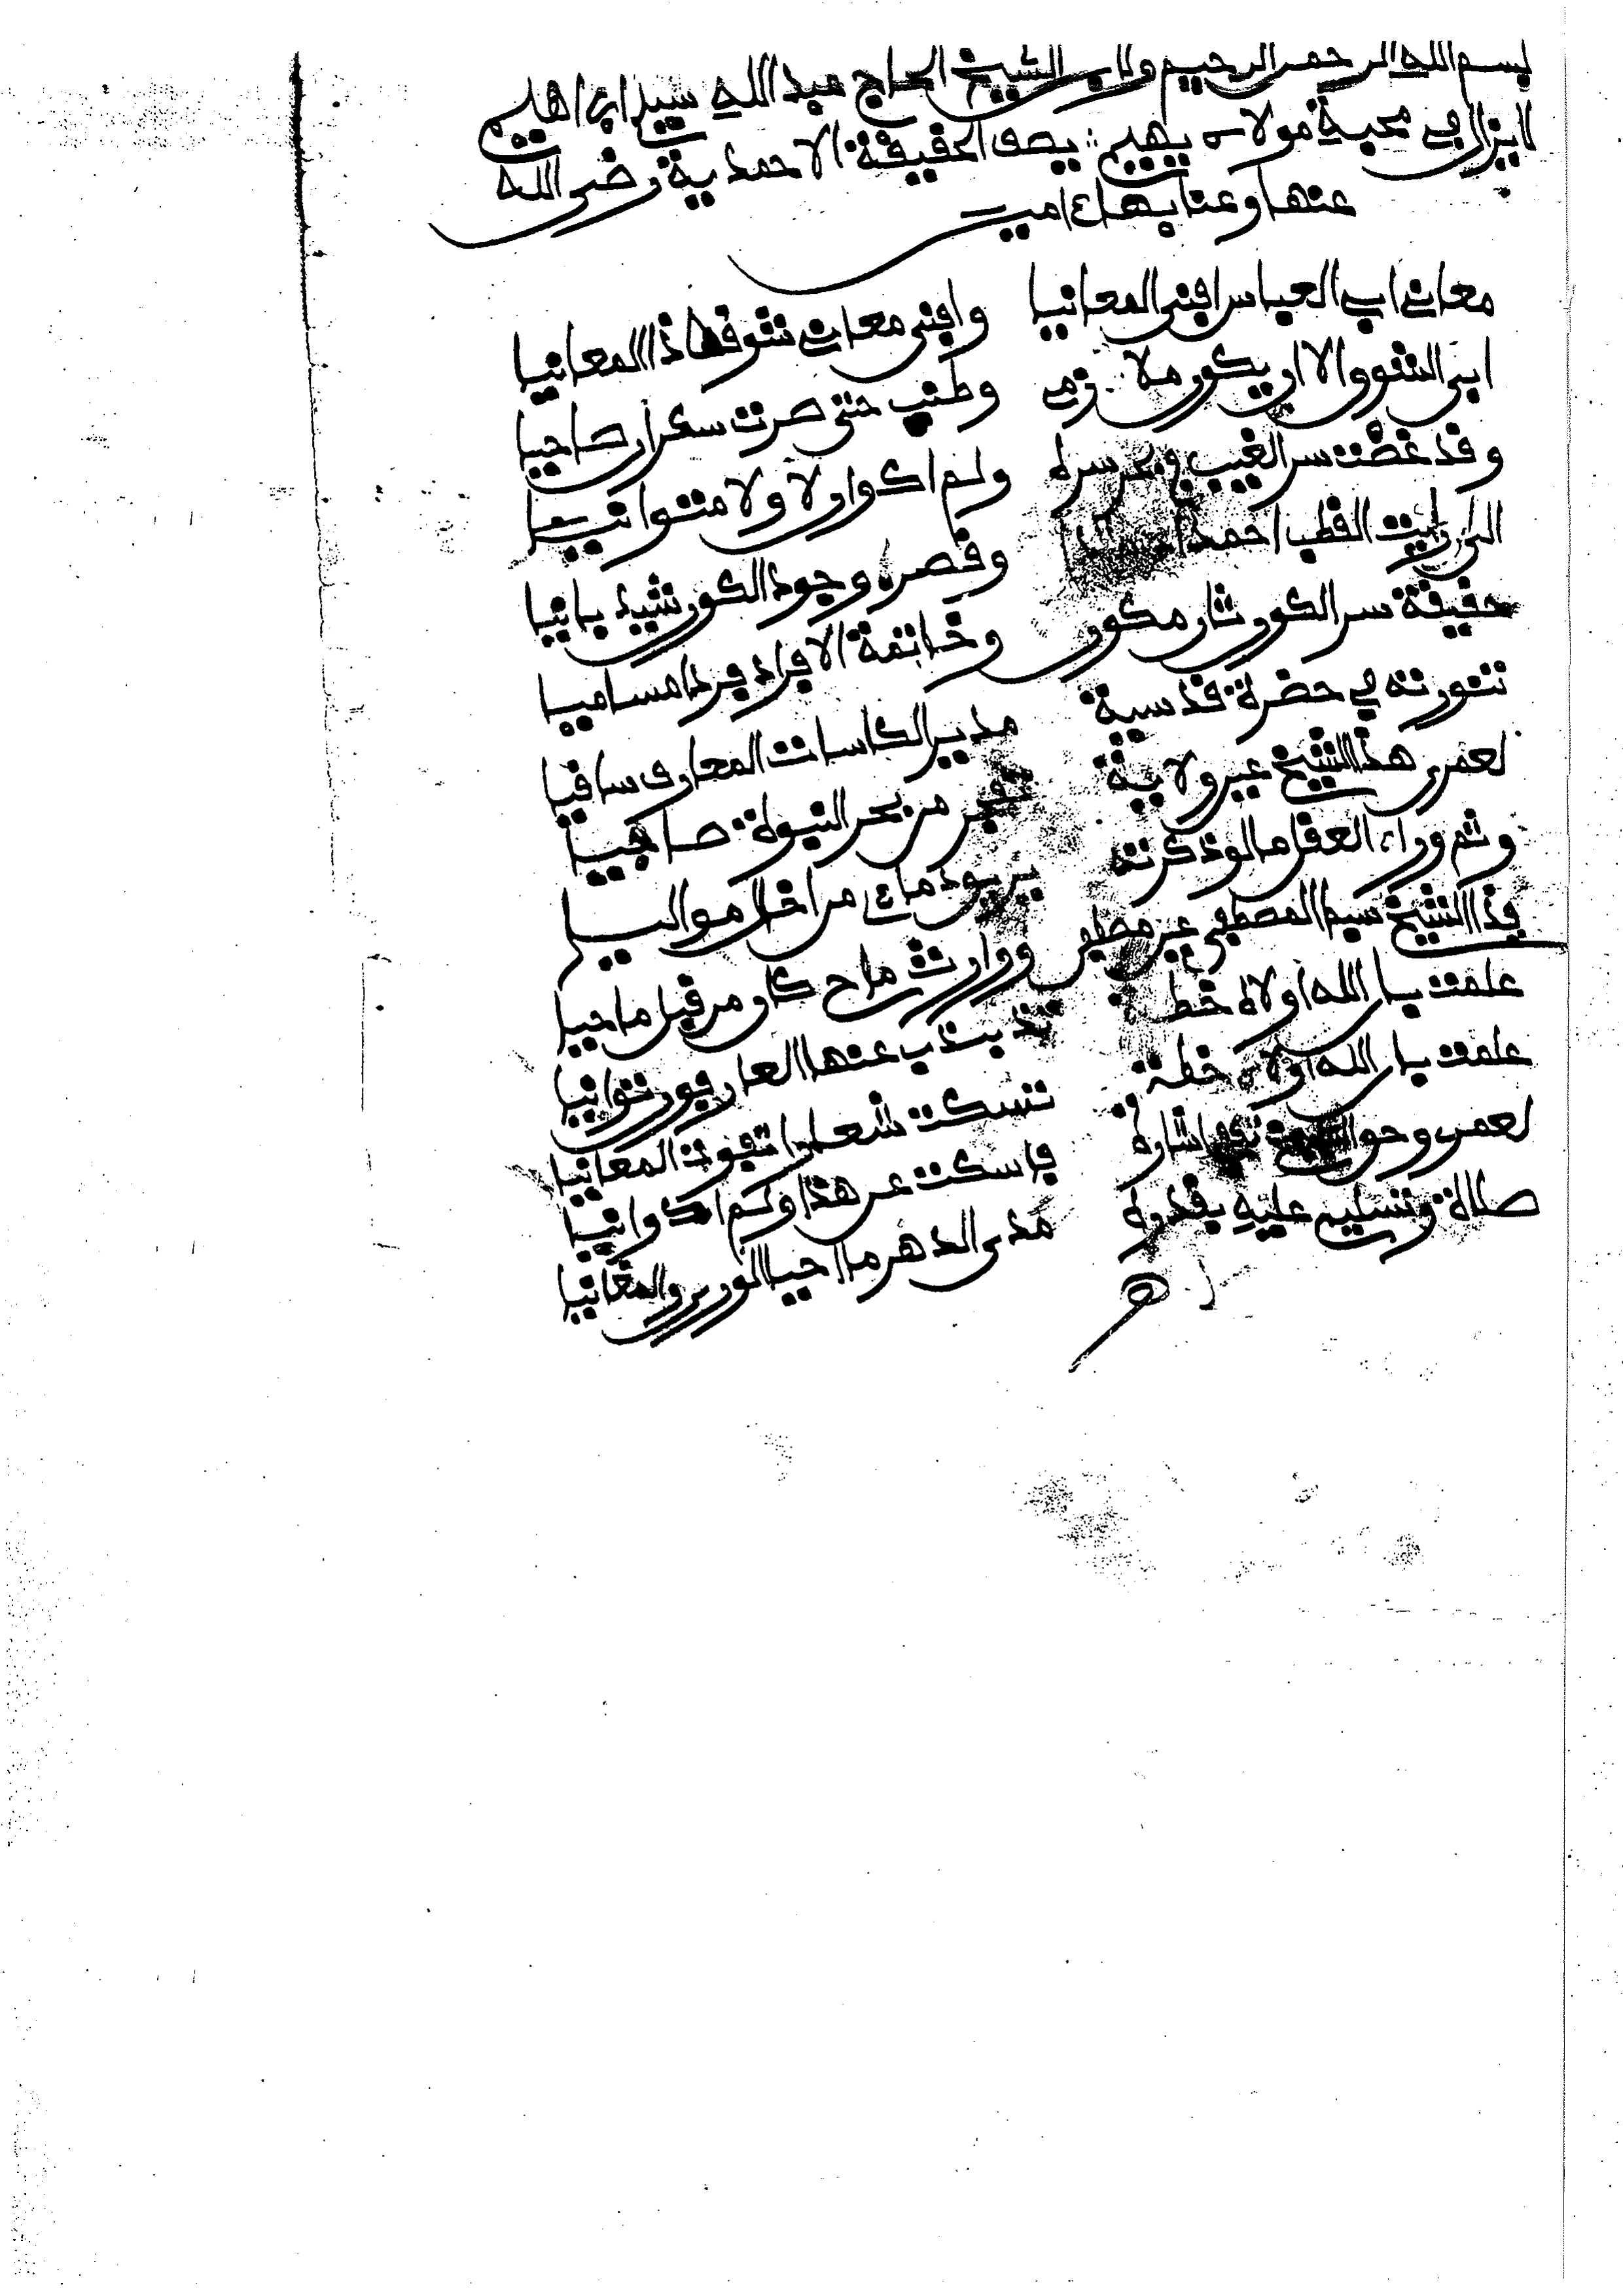 بسم الله الرحمن الرحيم ولاب الشيخ الحاج عبد الله شيد ابراهيم
لا يزال في محبة مولاه يهيم يصف الحقيقة الاحمدية رضي الله
عنها وعنا بها ءامين
معاني ابي العباس افنى المعانيا وافنى معاني شوقها ذا المعانيا
ابى الشوق الا ان يكون ملازمي وطبت حتى صرت سكران صاحيا
وقد غصت سر الغيب في بحر سره ولم اك وان لا ولا متوانيا
الى ان رايت القطب احمد وقصره وجود الكون شيد بانيا
حقيقة سر الكون ثان مكون وخاتمة الافراد فردا مساميا
تنورته في حضرة قدسية مدير الكاسات المعارف ساقيا
لعمري هذا الشيخ عين ولاية تفجر من بحر النبوة صافيا
وثم وراء العقل ما لو ذكرته من اخل مواليا
فذا الشيخ سيم المصطفى عين مظهر ووارث ماح كان من قبل ماحيا
علمت بان الله اولاه خطة تذبذب عنها العارفون توانيا
علمت بان الله اولاه خطة تسكت شعار تفوت المعانيا
لعمري وحق اشارة فاسكت عن هذا وكم اك وانيا
صلاة وتسليم عليه بقدره مدى الدهر ما احيا النور والمغانيا
اهـ